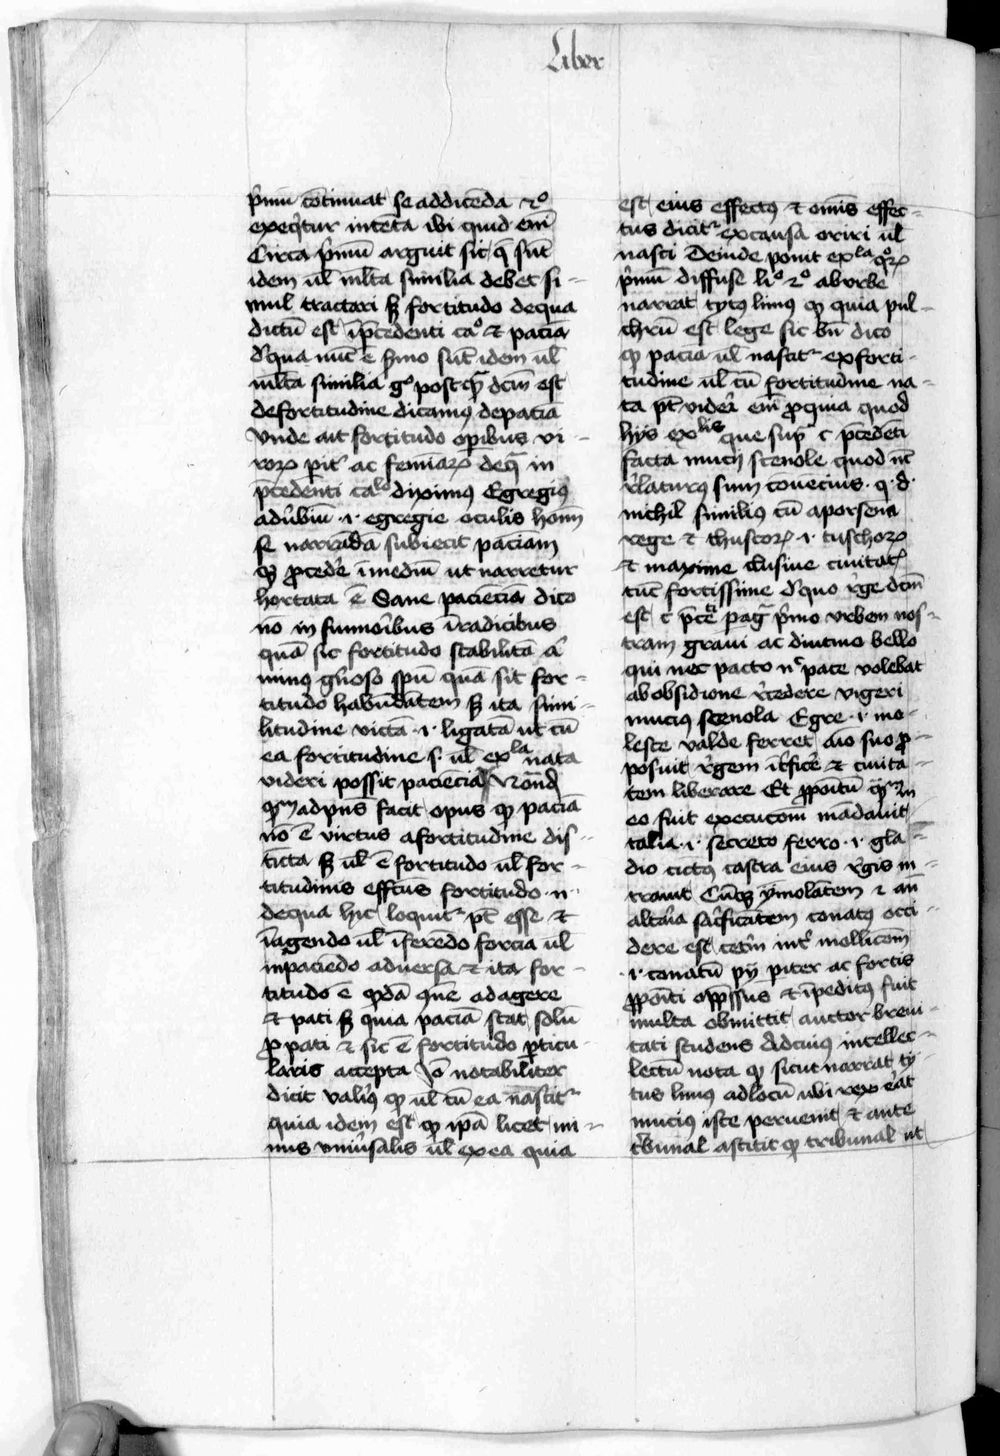 Liber
p̄mū cōtinuat se addicēda ⁊ 2º
exeq̄tur intēta ibi quid em̄
Circa p̄mū arguit sic q̄ sūt
idem ul̄ ml̄ta similia debēt si-
mul tractari sꝫ fortitudo dequa
dictū est ip̄cedenti caº et paciā
d'qua nūc ē sermo sūt idem ul̄
ml̄ta similia gº postq̄ꝫ dcm̄ est
defortitudine dicamꝰ depaciā
Vnde ait fortitudo oꝑibus vi-
roꝝ ꝑit' ac femīaꝝ deq̄ in
p̄cedenti caº diximus Egregiꝰ
adūbiū ·i· egregie oculis hom̄
se narrādā subiecit paciam
qꝫ ꝓcedē īmediū ut narretur
hortata ē Sane paciēciā dico
no in sumoībus īradicibus
quā sic fortitudo stabilitā a'
nimꝰ gn̄oso spū quā sit for-
titudo habūdātem sꝫ ita simi-
litudine victā ·i· ligatā ut cū
ea fortitudine s· ul̄ ex la nata
videri possit paciēcia Nonᵈ
qᵐ adpn̄s facit opus qꝫ paciā
nō ē virtus afortitudine dis-
ticta sꝫ ul̄ ē fortitudo ul̄ for-
titudinis effctus fortitudo ·n·
dequa hic loquitᷣ pt̄ esse et
īagendo ul̄ īferēdo forcia ul̄
inpaciēdo aduersa et ita for-
titudo ē qdā que adagere
et pati sꝫ quia paciā stat solū
ꝓ pati et sic ē fortitudo ꝑticu-
laris accepta Iō notabiliter
dicit valiꝰ qꝫ ul̄ cū ea nascitᷣ
quia idem est qꝫ ipā licet mi-
nus vniūsalis ul̄ ex ea quia
est eius effectꝰ et omīs effec-
tus dicitᷣ excausa oriri ul̄
nasci Deinde ponit ex la qºꝝ
p̄mū diffuse liº 2º aburbe
narrat tytꝰ liuiꝰ qꝫ quia pul-
chrū est lege sic bn̄ dico
qꝫ pacia ul̄ nascitᷣ exforti-
tudine ul̄ cū fortitudine na-
ta pt̄ viderī em̄ ꝓquia quod
hijs ex lis que sup̄ c p̄cedēti
facta mucij scenole quod nc̄
r̄laturꝰ sum cōueciꝰ · q· d·
nichil similiꝰ cū aporsena
rege et thuscoꝝ ·i· tuschoꝝ
et maxime clusine ciuitatꝭ
tūc fortissime d'quo r̄ge dcm̄
est c p̄cē pag p̄mo vrbem nos-
tram graui ac diutino bello
qui nec pacto nᶜ pace volebat
abobsidione r̄cedere vigeri
mucius scenola Egre ·i· mo-
leste valde ferret aīo suo ꝓ-
posuit r̄gem itficē et ciuita-
tem liberare Et ꝓpoitū
eo fuit execucom̄ mādauit
talia ·i· secreto ferro ·i· gla-
dio cictꝰ castra eius r̄gis in-
trauit Cūqꝫ ymolātem et an̄
altaīa saᷤficātem conatꝰ occi-
dere est cetīm int' mollicom̄
·i· conatū pij ꝑiter ac fortis
ꝓpoīti opp̄ssus et īpeditꝰ fuit
multa obmittit auctor breui-
tati studens Adcuiꝰ intellec-
lectū nota qꝫ sicut narrat ty-
tus liuiꝰ adlocū ubi rex erat
mucius iste peruenit et ante
tribunal astitit qꝫ tribunal ut